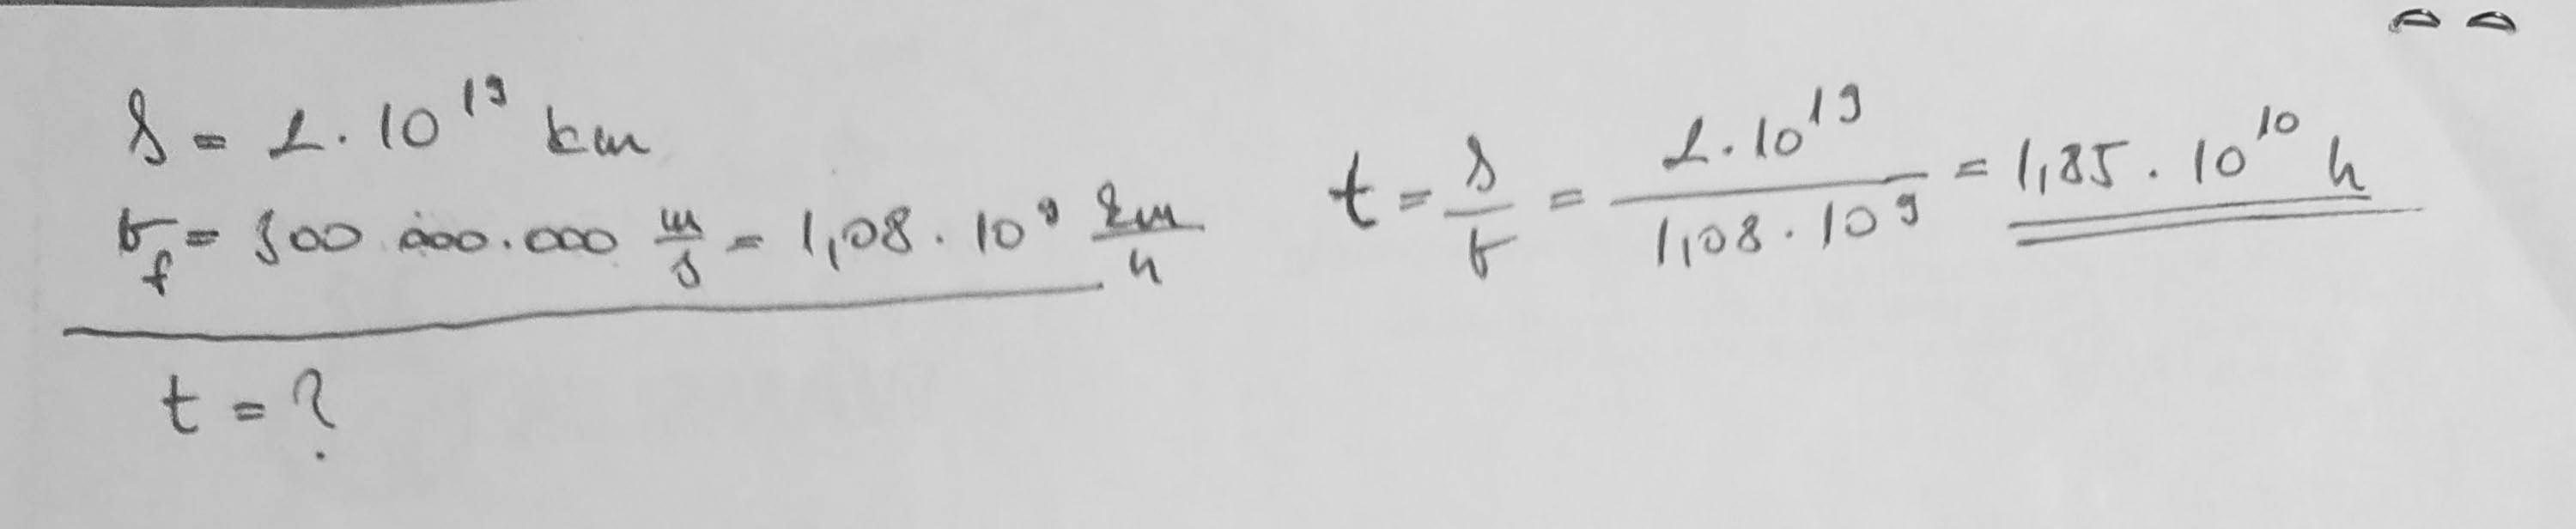 s = 2 · 10^19 km
v_f = 300 000.000 m/s = 1,08 · 10^9 km/h
t = ?
t = s/v = 2 · 10^19 / 1,08 · 10^9 = 1,85 · 10^10 h